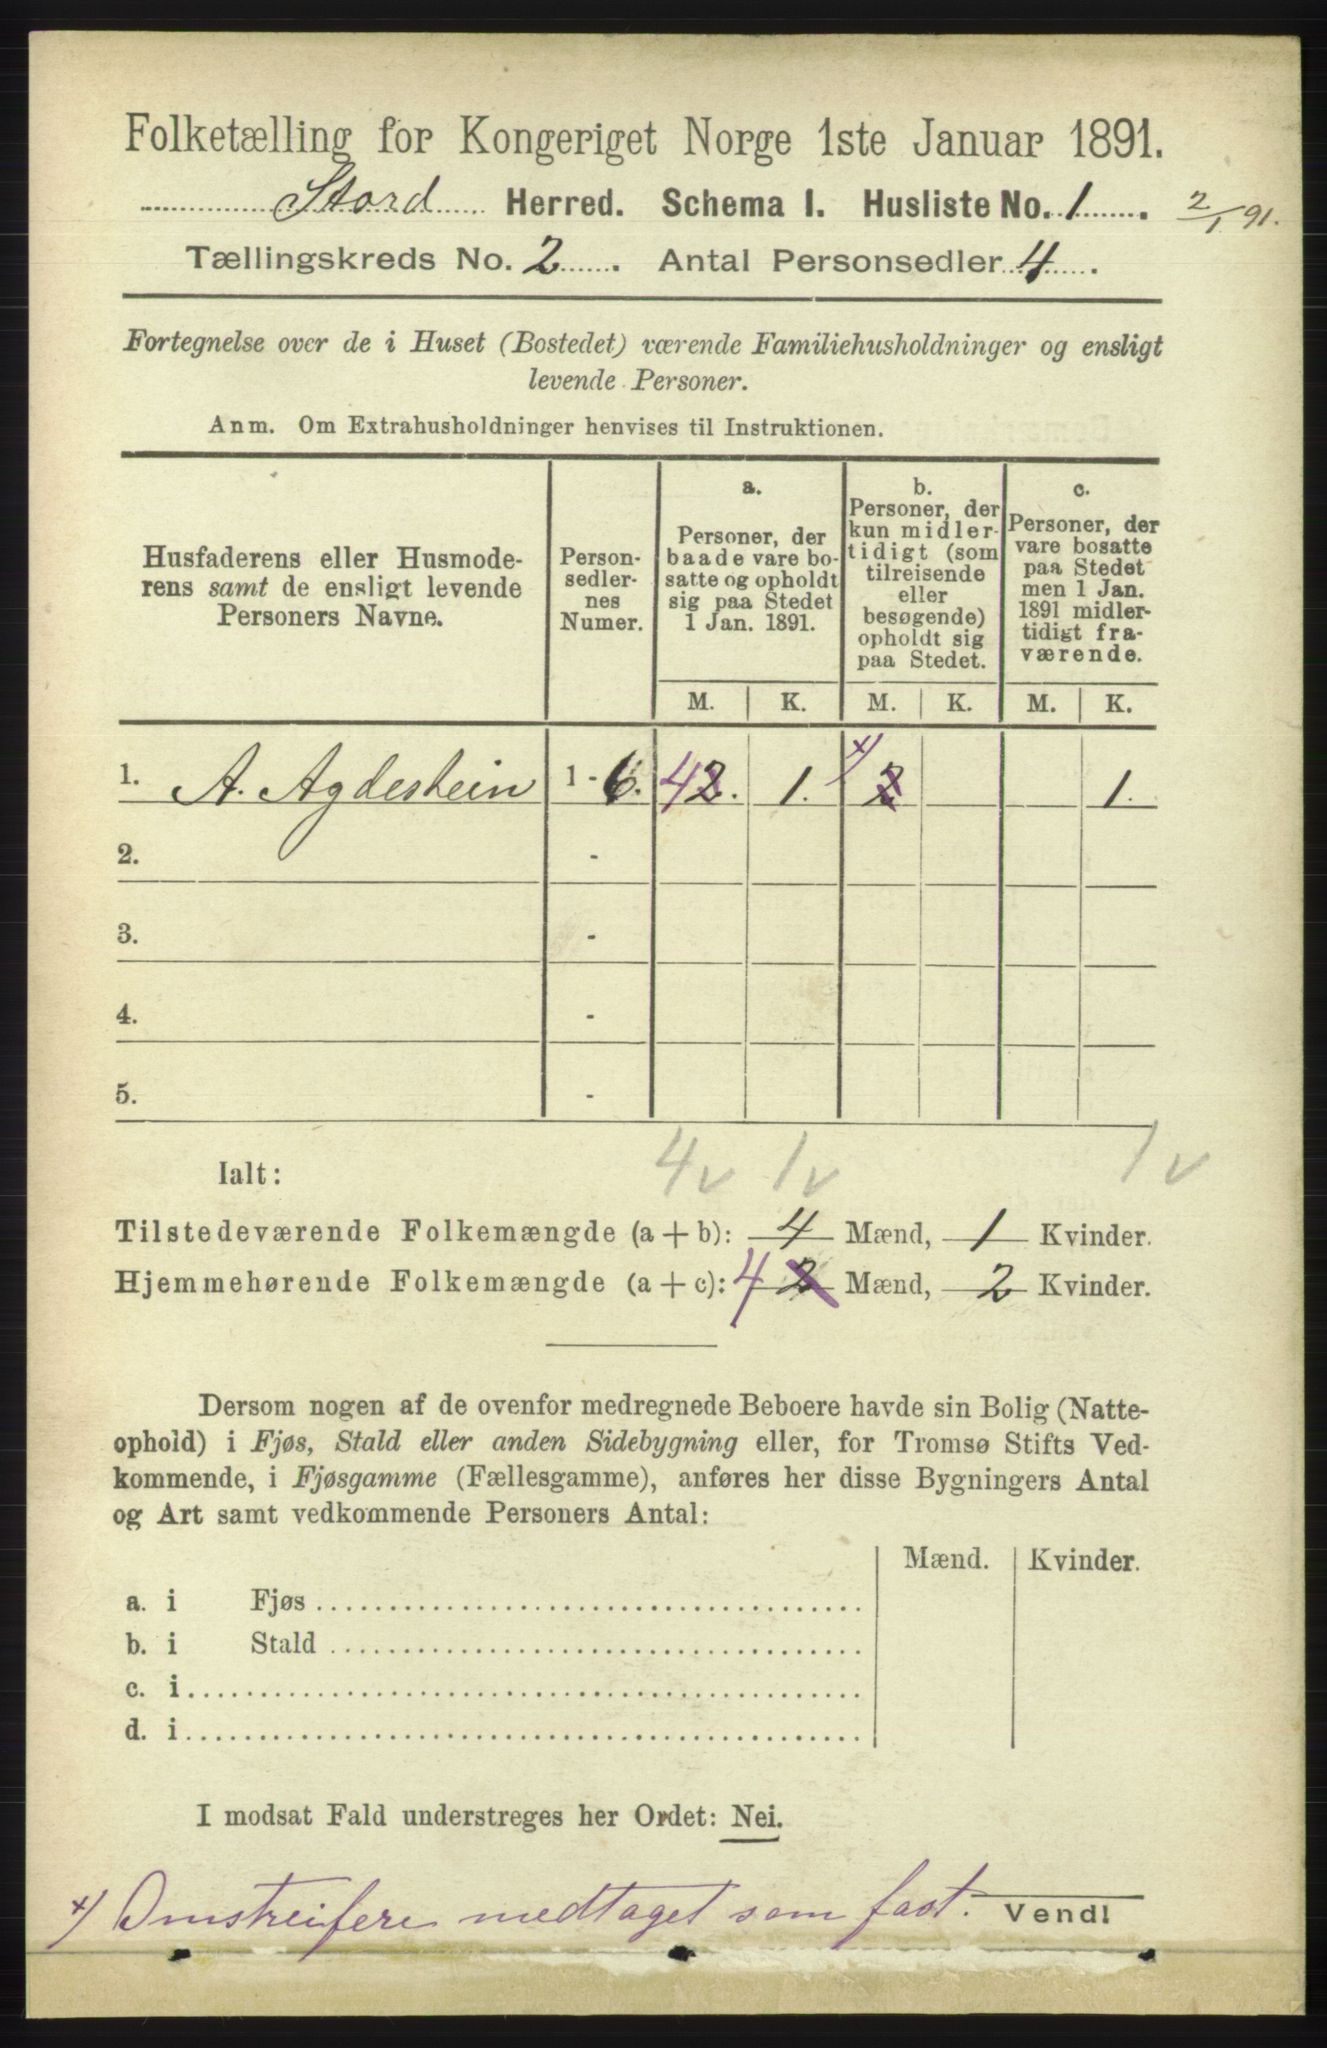 Folketælling for Kongeriget Norge 1ste Januar 1891.
Stord Herred. Schema I. Husliste No. 1. 2/1 91.
Tællingskreds No. 2. Antal Personsedler 4.
Fortegnelse over de i Huset (Bostedet) værende Familiehusholdninger og ensligt
levende Personer.
Anm. Om Extrahusholdninger henvises til Instruktionen.
Husfaderens eller Husmode-
rens samt de ensligt levende
Personers Navne.
Person-
sedler-
nes
Numer.
a.
Personer, der
baade vare bo-
satte og opholdt
sig paa Stedet
1 Jan. 1891.
b.
Personer, der
kun midler-
tidigt (som
tilreisende
eller
besøgende)
opholdt sig
paa Stedet.
c.
Personer, der
vare bosatte
paa Stedet
men 1 Jan.
1891 midler-
tidigt fra-
værende.
M. K. M. K. M. K.
1. A. Agdestein 1 - 6. 4 2. 1. x) 2 1.
2. -
3. -
4. -
5. -
Ialt: 4v 1v 1v
Tilstedeværende Folkemængde (a + b): 4 Mænd, 1 Kvinder.
Hjemmehørende Folkemængde (a + c): 4 2 Mænd, 2 Kvinder.
Dersom nogen af de ovenfor medregnede Beboere havde sin Bolig (Natte-
ophold) i Fjøs, Stald eller anden Sidebygning eller, for Tromsø Stifts Ved-
kommende, i Fjøsgamme (Fællesgamme), anføres her disse Bygningers Antal
og Art samt vedkommende Personers Antal:
Mænd. Kvinder.
a. i Fjøs
b. i Stald
c. i
d. i
I modsat Fald understreges her Ordet: Nei.
x) Omstreifere medtaget som fast.
Vend!